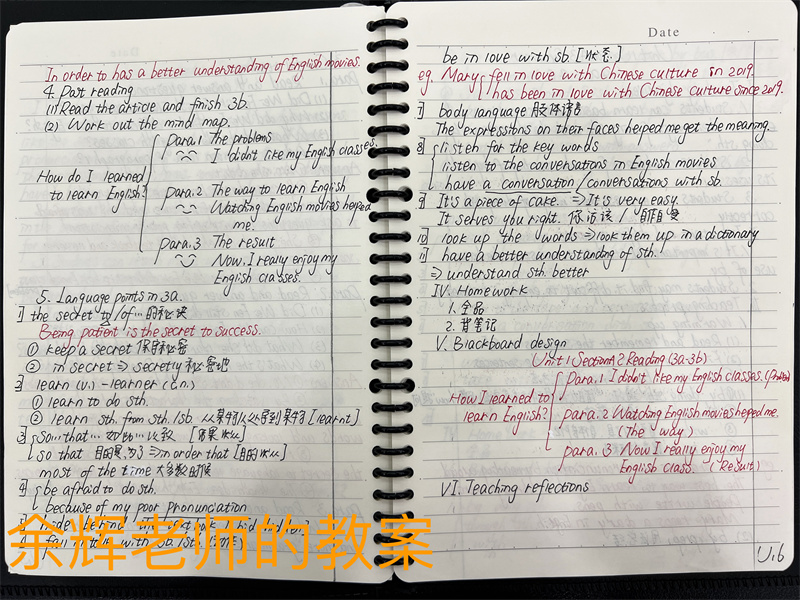 In order to has a better understanding of English movies.
4. Past reading
(1) Read the article and finish 3b.
(2) Work out the mind map.
How do I learned to learn English?
Para.1 The problems
I didn't like my English classes.
Para.2 The way to learn English
Watching English movies helped me.
Para.3 The result
Now. I really enjoy my English classes.
5. Language points in 3a.
1] the secret to/of… 的秘诀
Being patient is the secret to success.
① keep a secret 保守秘密
② in secret ⇒ secretly 秘密地
2] learn (v.) - learner (c.n.)
① learn to do sth.
② learn sth. from sth./sb. 从某物/从某人处学到某物 [learnt]
3] so…that… 如此…以致 [结果状从]
so that ⇒ in order that [目的状从]
most of the time 大多数时候
4] be afraid to do sth.
because of my poor pronunciation
余辉老师的教案
Date
be in love with sb. [状态]
eg. Mary fell in love with Chinese culture in 2019.
has been in love with Chinese culture since 2019.
7] body language 肢体语言
The expressions on their faces helped me get the meaning.
8] listen for the key words
listen to the conversations in English movies
have a conversation/conversations with sb.
9] It's a piece of cake. ⇒ It's very easy.
It serves you right. 你活该/
10] look up the words ⇒ look them up in a dictionary
11] have a better understanding of sth.
⇒ understand sth. better
IV. Homework
1. 全品
2. 背笔记
V. Blackboard design
Unit 1 Section A 2 Reading (3a-3b)
How I learned to learn English?
para.1 I didn't like my English classes.
para.2 Watching English movies heped me.
(The way)
para.3 Now I really enjoy my English class. (Result)
VI. Teaching reflections